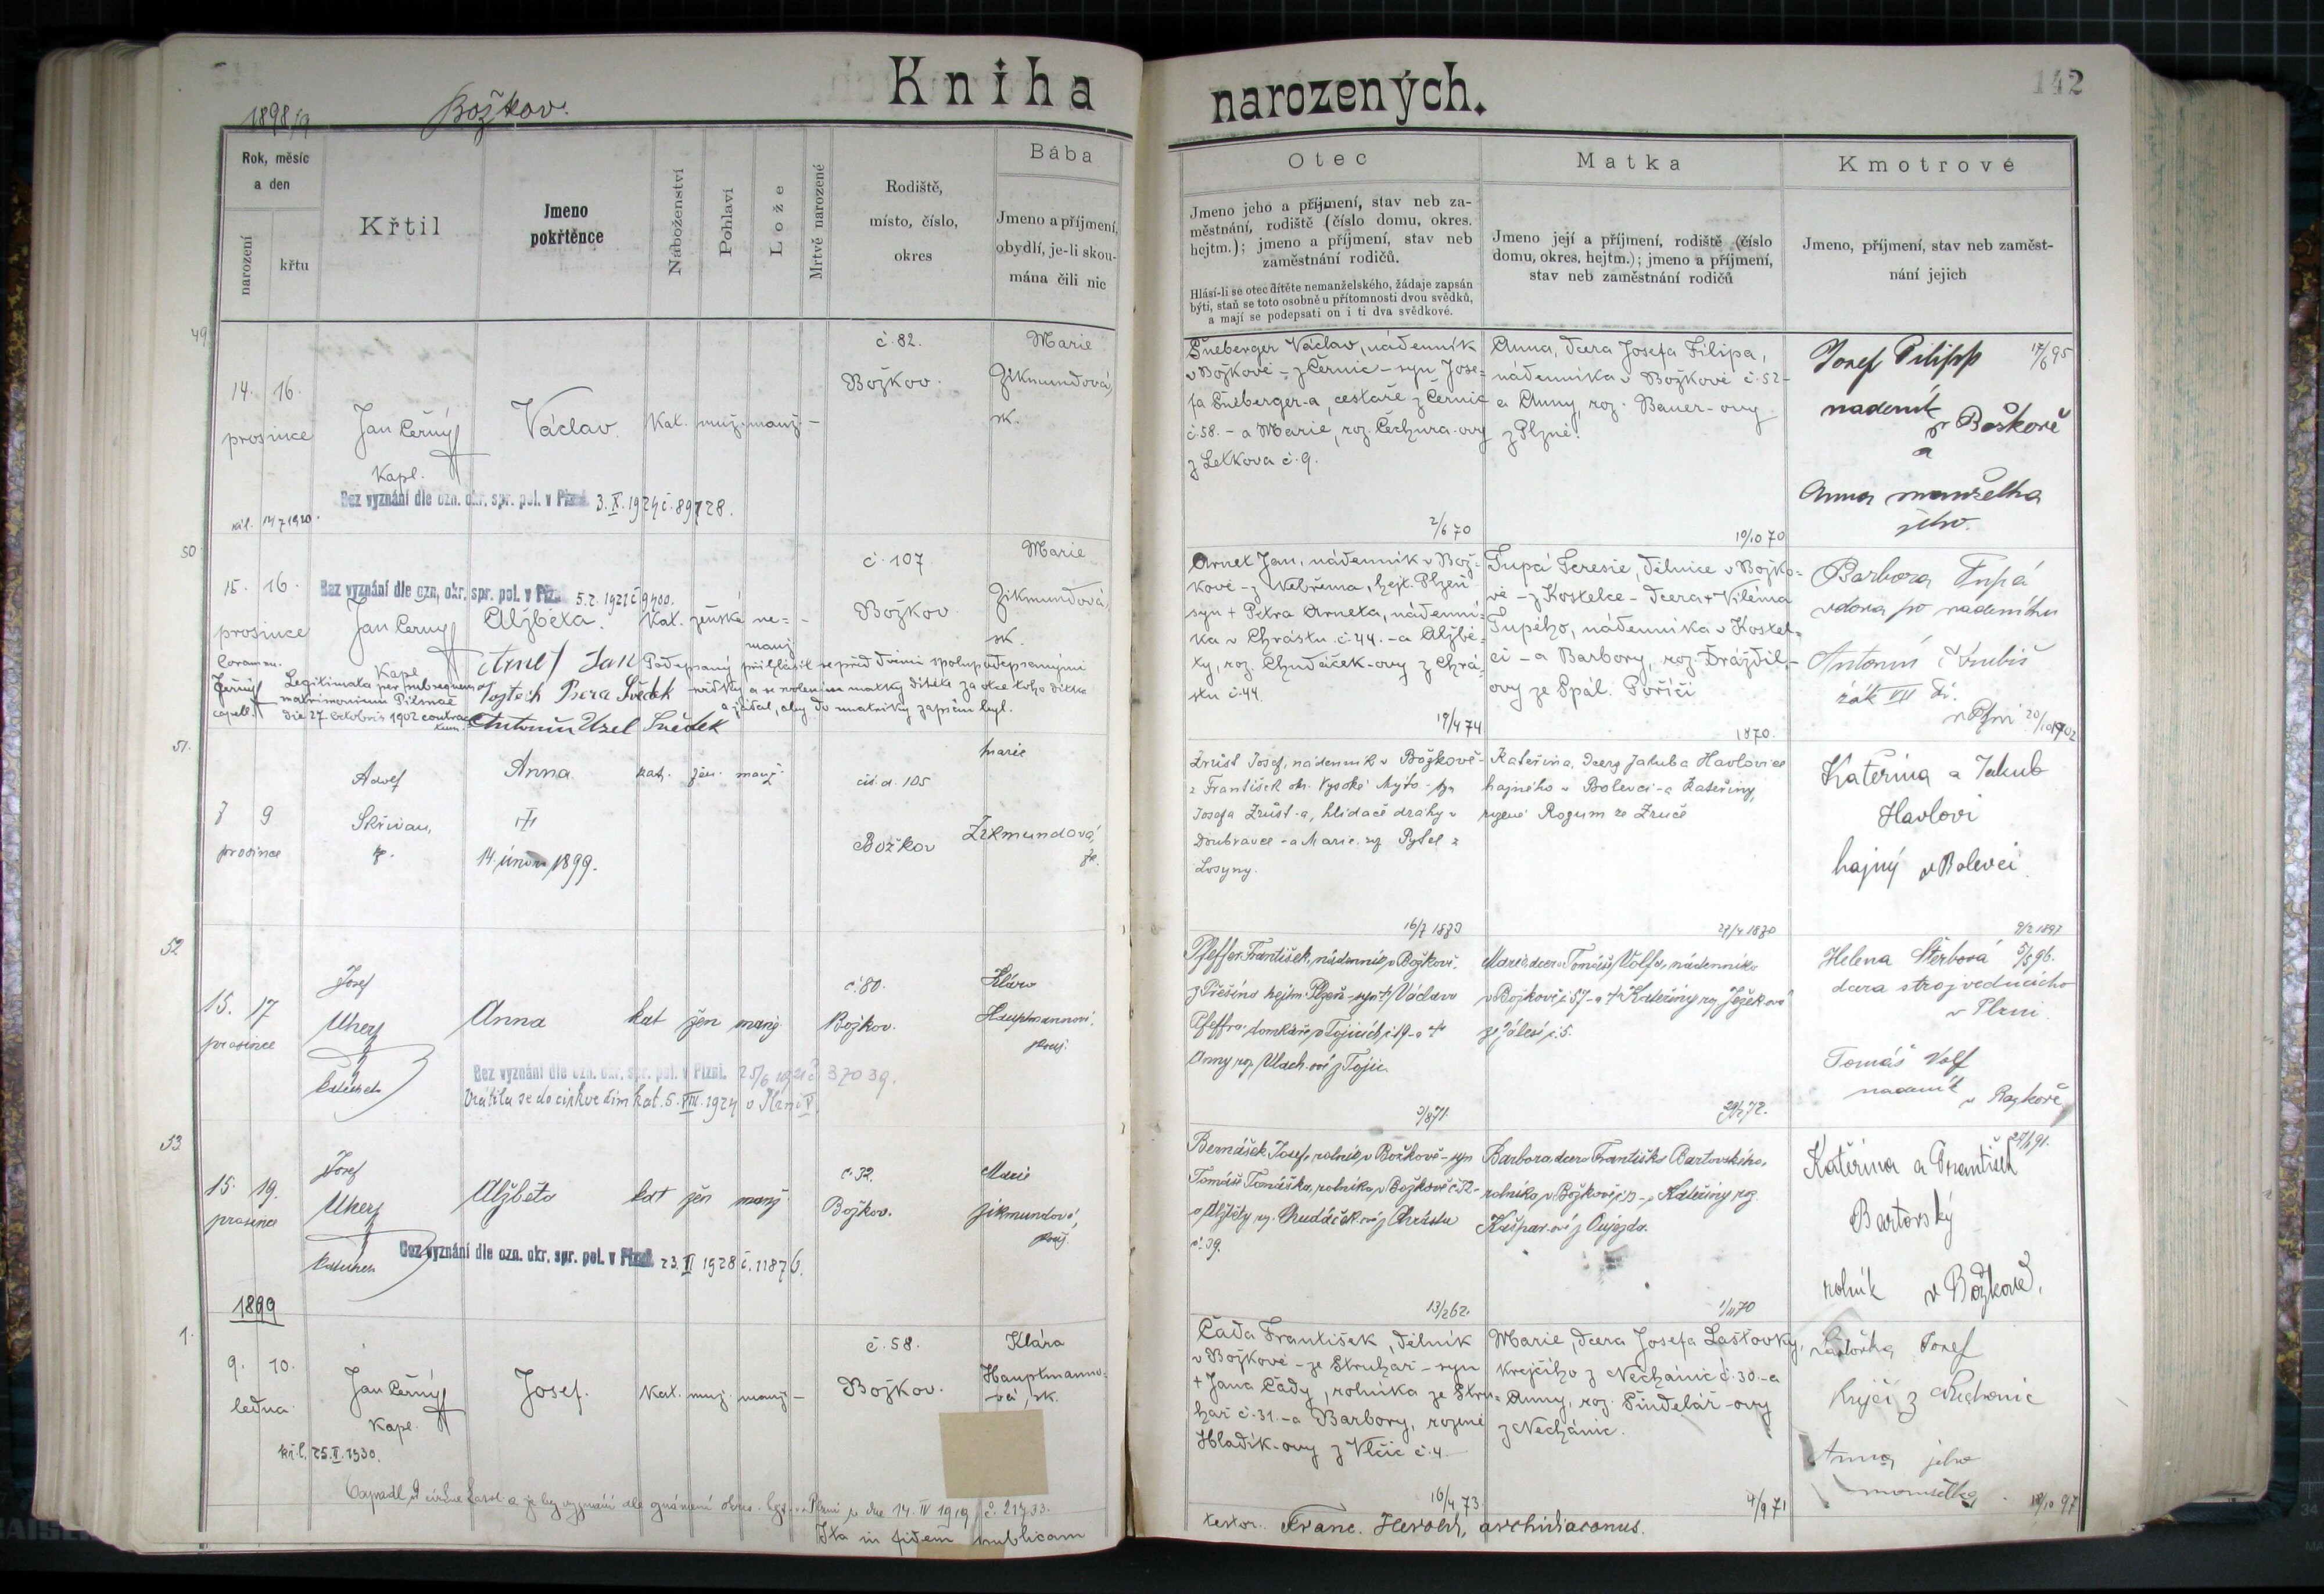 Kniha narozených.
142
1898/9
Božkov.
Rok, měsíc
a den
narození
křtu
Křtil
Jmeno
pokřtěnce
Náboženství
Pohlaví
Lože
Mrtvě narozené
Rodiště,
místo, číslo,
okres
Bába
Jmeno a příjmení,
obydlí, je-li skou-
mána čili nic
Otec
Jmeno jeho a příjmení, stav neb za-
městnání, rodiště (číslo domu, okres.
hejtm.); jmeno a příjmení, stav neb
zaměstnání rodičů.
Hlásí-li se otec dítěte nemanželského, žádaje zapsán
býti, staň se toto osobně u přítomnosti dvou svědků,
a mají se podepsati on i ti dva svědkové.
Matka
Jmeno její a příjmení, rodiště (číslo
domu, okres, hejtm.); jmeno a příjmení,
stav neb zaměstnání rodičů
Kmotrové
Jmeno, příjmení, stav neb zaměst-
nání jejich
49
14. 16.
prosince
Jan Černý
Kapl.
Václav
Kat. muž. manž. -
č. 82.
Božkov.
Marie
Zikmundová,
sk.
Bez vyznání dle ozn. okr. spr. pol. v Plzni. 3.X.1924 č. 89728.
14/7 1920.
Šneberger Václav, nádenník
v Božkově - z Černic - syn Jose-
fa Šneberger-a, cestáře z Černic
č. 58. - a Marie, roz. Čechura-ovy
z Letkova č. 9.
2/6 70
Anna, dcera Josefa Filipa,
nádenníka v Božkově č. 52-
a Anny, roz. Bauer-ovy
z Plzně.
10/10 70
Josef Pilipp
nadeník
v Boškově
a
Anna manželka
jeho
50
15. 16.
prosince
Bez vyznání dle ozn. okr. spr. pol. v Plz.
Jan Černý
Kapl
Alžběta.
Kat. ženské ne=
manž
č. 107
Božkov
Marie
Zikmundová,
sk.
Arnet Jan
Podepsaný přihlásil se před dvěmi spolupodepsanými
svědky a se svolením matky dítěte za otce toho dítka
a žádal, aby do matriky zapsán byl.
Coram me.
Černý
capell.
Legitimata per subsequens
matrimonium Pilsnae
die 27. octobris 1902 contrac
tum.
Vojtěch Svědek
Antonín Uzel Svědek
Arnet Jan, nádenník v Bož-
kově - z Nebřema, hejt. Plzeň
syn + Petra Arneta, nádenní-
ka v Chrástu č. 44. - a Alžbě-
ty, roz. Chudáček-ovy z Chrá-
stu č. 44.
19/4 74
Tupá Terezie, dělnice v Božko-
vě - z Kostelce - dcera + Viléma
Tupého, nádenníka v Kostel-
ci - a Barbory, roz. Brázdil-
ovy ze Spál. Poříčí
1870.
Barbora Tupá
vdova po nadeníku
Antonín
žák VII tř.
v Plzni
51.
7 9
prosince
Adolf
Skřivan,
Anna
14. února 1899.
kat. žen. manž.
čís. d. 105
Božkov
Marie
Zikmundová,
Zrůst Josef, nádenník v Božkově-
z František okr. Vysoké Mýto - syn
Josefa Zrůst-a, hlídače dráhy v
Doubravce - a Marie roz. Pytel z
Losyny.
Kateřina, dcera Jakuba Havlovice
hajného v Bolevci - a Kateřiny,
rozené Rogum ze Zruče
27/4 1870
Kateřina a Jakub
Havlovi
hajný v Bolevci
9/2 1897
52
15. 17
prosince
Josef
Uherz
katecheta
Anna
kat žen manž.
č. 80.
Božkov.
Klára
Hauptmannová.
Bez vyznání dle ozn. okr. spr. pol. v Plzni. 25/6 1921 č. 37039.
Vrátila se do církve řím. kat. 5. VIII. 1924 v Plzni V.
Pfeffer František, nádenník v Božkově,
z Přešína hejtm. Plzeň - syn + Václava
Pfeffra domkáře v Tojicích č. 19 - a +
Anny roz. Vlach-ové z Tojic.
9/8 71.
Marie, dcera Tomáše Volfa, nádenníka
v Božkově č. 57 - a + Kateřiny roz. Ježkové
ze Zálesí č. 5.
Helena Štěrbová 5/8 96.
dcera strojvedoucího
v Plzni.
Tomáš Volf
nadeník
v Bozkově
53
15. 19.
prosince
Josef
Uherz
katecheta
Alžběta
kat žen manž.
č. 32.
Božkov.
Marie
Zikmundová,
Bez vyznání dle ozn. okr. spr. pol. v Plzni. 23. II 1928 č. 11876.
Bernášek Josef, rolník v Božkově - syn
Tomáše Tomáška, rolníka v Božkově č. 32-
a Alžběty roz. Chudáček-ové z Chrástu
č. 39.
13/2 62.
Barbora, dcera Františka Bartovského,
rolníka v Božkově č. 13 - a Kateřiny roz.
Kašpar-ové z Oujezda.
1/11 70
Kateřina a František
Bartovský
rolník v Božkově.
1899
1.
9. 10.
ledna
Jan Černý
Kapl.
Josef.
Kat. muž. manž. -
č. 58.
Božkov.
Klára
Hauptmanno-
vá, sk.
kř. l. 25.V.1930.
Čada František, dělník
v Božkově - ze Struhař - syn
+ Jana Čady, rolníka ze Stru-
hař č. 31. - a Barbory, rozené
Hladík-ovy z Vlčic č. 4.
16/4 73.
Marie, dcera Josefa Laštovky,
krejčího z Nechánic č. 30. - a
Anny, roz. Šindelář-ovy
z Nechánic.
4/9 71
Laštovka Josef
krejčí z Nechanic
Anna jeho
manželka
18/10 97
Ita in fidem publicam
testor. Franc. Herold, archidiaconus.